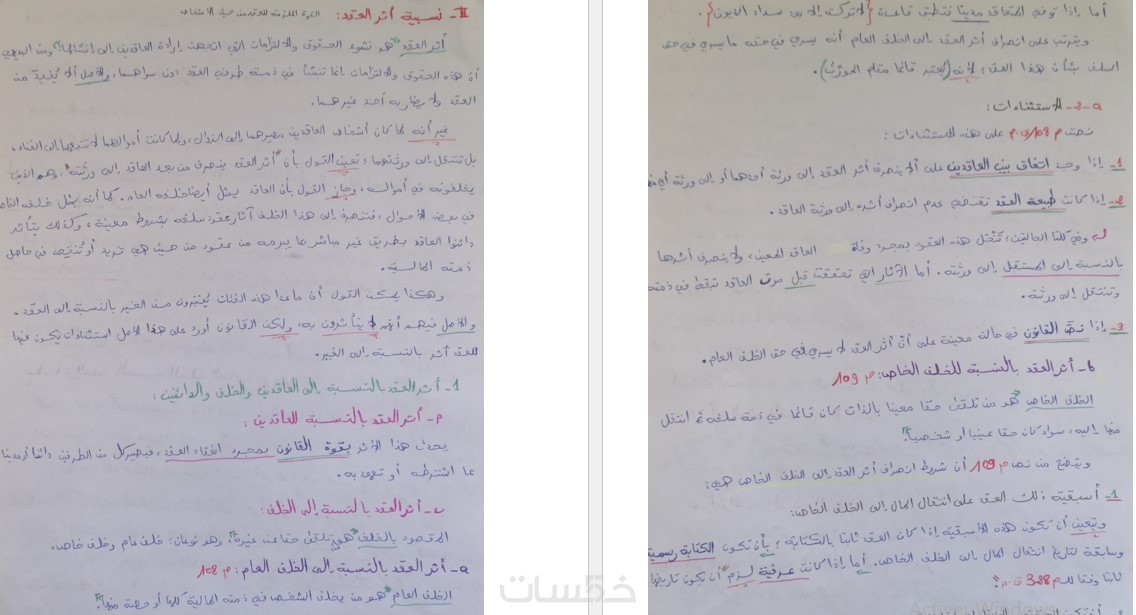 II- نسبية أثر العقد: القوة الملزمة للعقد من حيث الأشخاص
أثر العقد هو نشوء الحقوق والالتزامات التي اتجهت إرادة العاقدين إلى إنشائها، ومن البديهي
أن هذه الحقوق والالتزامات إنما تنشأ في ذمة طرفي العقد دون سواهما، والأصل ألا يفيد من
العقد ولا يضار به أحد غيرهما.
غير أنه لما كان أشخاص العاقدين مصيرهما إلى الزوال، ولما كانت أموالهما لا تتبعهما إلى الفناء،
بل تنتقل إلى ورثتهما؛ تعين القول بأن "أثر العقد ينصرف من بعد العاقد إلى ورثته"، وهم الذين
يخلفونه في أمواله، وجاز القول بأن العاقد يمثل أيضا خلفه العام. كما أنه يمثل خلفه الخاص
في بعض الأحوال، فتنصرف إلى هذا الخلف آثار عقود سلفه بشروط معينة، وكذلك يتأثر
دائنوا العاقد بطريق غير مباشر بما يبرمه من عقود من حيث هي تزيد أو تُنقص في حاصل
ذمته المالية.
وهكذا يمكن القول أن ماعدا هذه الفئات يُعتبرون من الغير بالنسبة إلى العقد.
والأصل فيهم أنهم لا يتأثرون به، ولكن القانون أورد على هذا الأصل استثناءات يكون فيها
للعقد أثر بالنسبة إلى الغير.
1- أثر العقد بالنسبة إلى العاقدين والخلف والدائنين:
أ- أثر العقد بالنسبة للعاقدين:
يحدث هذا الأثر بقوة القانون بمجرد انعقاد العقد، فيصير كل من الطرفين دائنا أو مدينا
بما اشترطه أو تعهد به.
ب- أثر العقد بالنسبة إلى الخلف:
المقصود بالخلف "هو من تلقى حقا عن غيره". وهو نوعان: خلف عام وخلف خاص.
a- أثر العقد بالنسبة إلى الخلف العام: م 108
الخلف العام "هو من يخلف الشخص في ذمته المالية كلها أو حصة منها".
أما إذا توفي المتعاقد مدينا فتطبق قاعدة {لا تركة إلا بعد سداد الديون}.
ويترتب على انصراف أثر العقد إلى الخلف العام أنه يسري في حقه ما يسري في حق
السلف بشأن هذا العقد؛ لأنه (يُعتبر قائما مقام المورّث).
a-2- الاستثناءات:
نصت م 108 ق.م على هذه الاستثناءات:
1- إذا وجد اتفاق بين العاقدين على ألا ينصرف أثر العقد إلى ورثة أحدهما أو إلى ورثة أي منهما
2- إذا كانت طبيعة العقد تقتضي عدم انصراف أثره إلى ورثة العاقد.
وفي كلتا الحالتين؛ تنحل هذه العقود بمجرد وفاة العاقد المعين، ولا ينصرف أثرها
بالنسبة إلى المستقبل إلى ورثته. أما الآثار التي تحققت قبل موت العاقد تبقى في ذمته
وتنتقل إلى ورثته.
3- إذا نصّ القانون في حالة معينة على أن أثر العقد لا يسري في حق الخلف العام.
b- أثر العقد بالنسبة للخلف الخاص: م 109
الخلف الخاص "هو من تلقى حقا معينا بالذات كان قائما في ذمة سلفه ثم انتقل
منها إليه، سواء كان حقا عينيا أو شخصيا".
ويتضح من نص م 109 أن شروط انصراف أثر العقد إلى الخلف الخاص هي:
1- أسبقية ذلك العقد على انتقال المال إلى الخلف الخاص:
ويتعين أن تكون هذه الأسبقية إذا كان العقد ثابتا بالكتابة؛ بأن تكون الكتابة رسمية
وسابقة لتاريخ انتقال المال إلى الخلف الخاص. أما إذا كانت عرفية لزم أن يكون تاريخها
ثابتا وفقا للم 328 ق.م.
خمسات